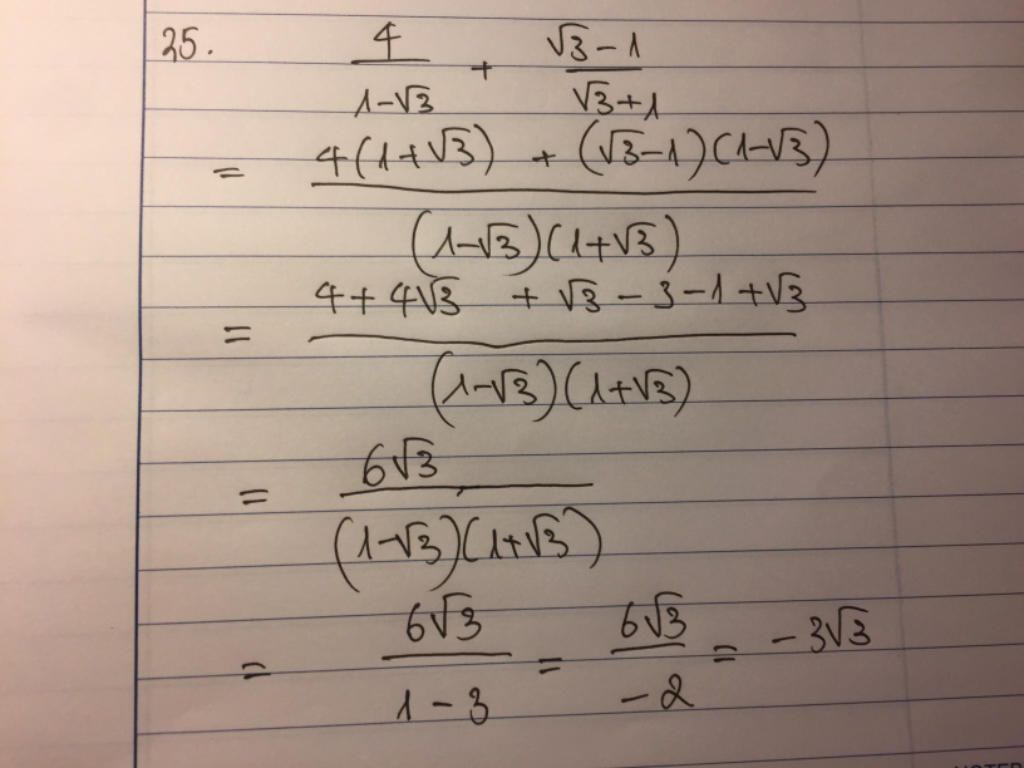 25. 4/(1-√3) + (√3-1)/(√3+1)
= (4(1+√3) + (√3-1)(1-√3))/((1-√3)(1+√3))
= (4+4√3 + √3-3-1+√3)/((1-√3)(1+√3))
= 6√3/((1-√3)(1+√3))
= 6√3/(1-3) = 6√3/(-2) = -3√3